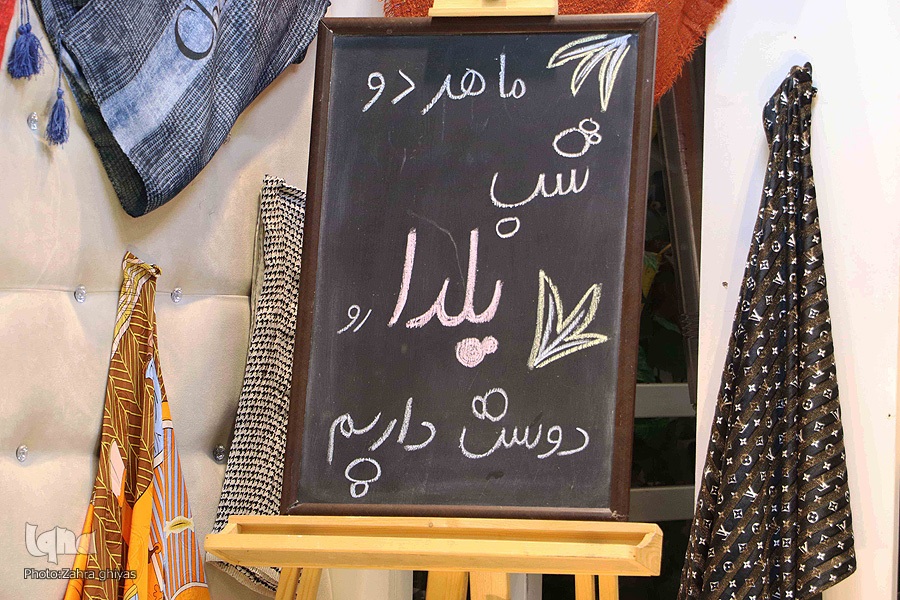 ما هر دو
شب
یلدا رو
دوست داریم
iqna
Photo:Zahra ghiyas